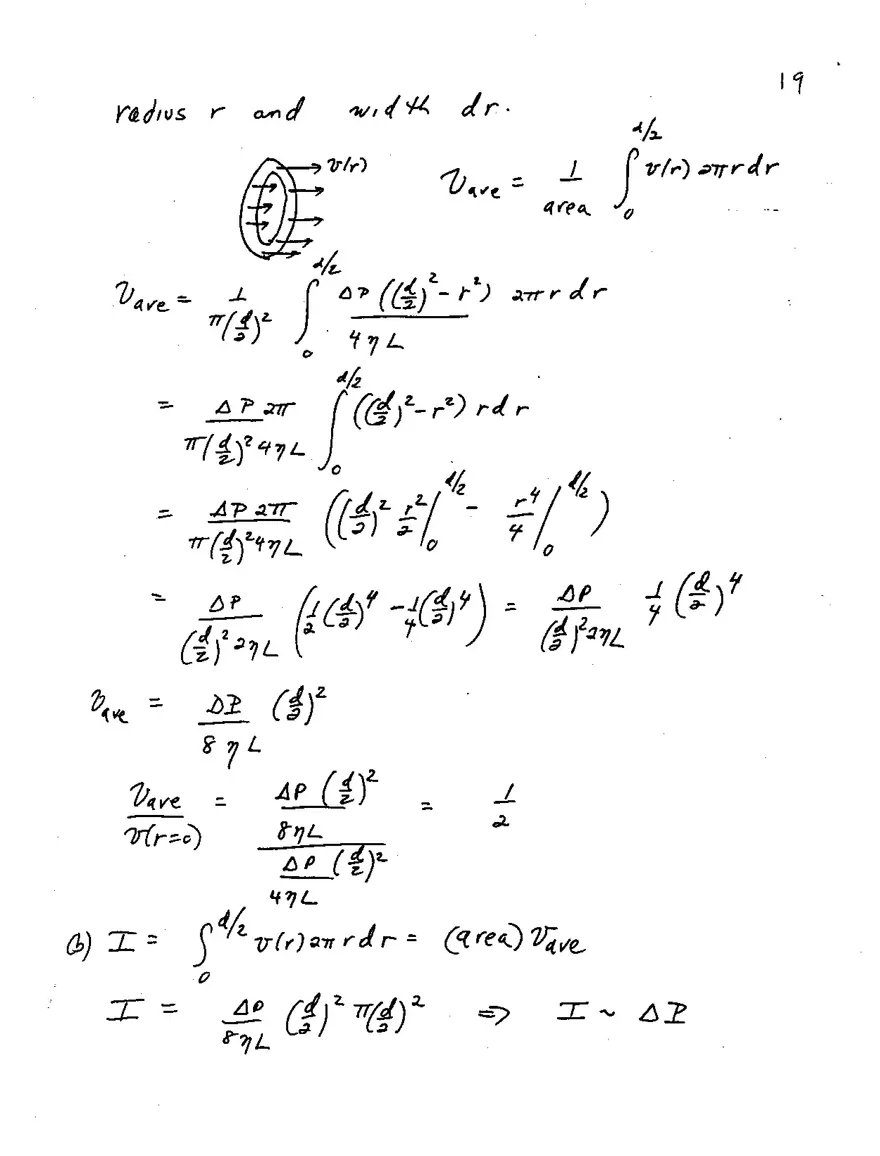 19
radius r and width dr.
v(r) v_ave = 1/area ∫_0^{d/2} v(r) 2πr dr
v_ave = 1/(π(d/2)²) ∫_0^{d/2} ΔP((d/2)² - r²)/(4ηL) 2πr dr
= ΔP 2π/(π(d/2)² 4ηL) ∫_0^{d/2} ((d/2)² - r²) r dr
= ΔP 2π/(π(d/2)² 4ηL) ((d/2)² r²/2 |_0^{d/2} - r⁴/4 |_0^{d/2})
= ΔP/((d/2)² 2ηL) (1/2 (d/2)⁴ - 1/4 (d/2)⁴) = ΔP/((d/2)² 2ηL) 1/4 (d/2)⁴
v_ave = ΔP/(8ηL) (d/2)²
v_ave/v(r=0) = (ΔP (d/2)²/(8ηL))/(ΔP (d/2)²/(4ηL)) = 1/2
(b) I = ∫_0^{d/2} v(r) 2πr dr = (area) v_ave
I = ΔP/(8ηL) (d/2)² π(d/2)² ⇒ I ~ ΔP